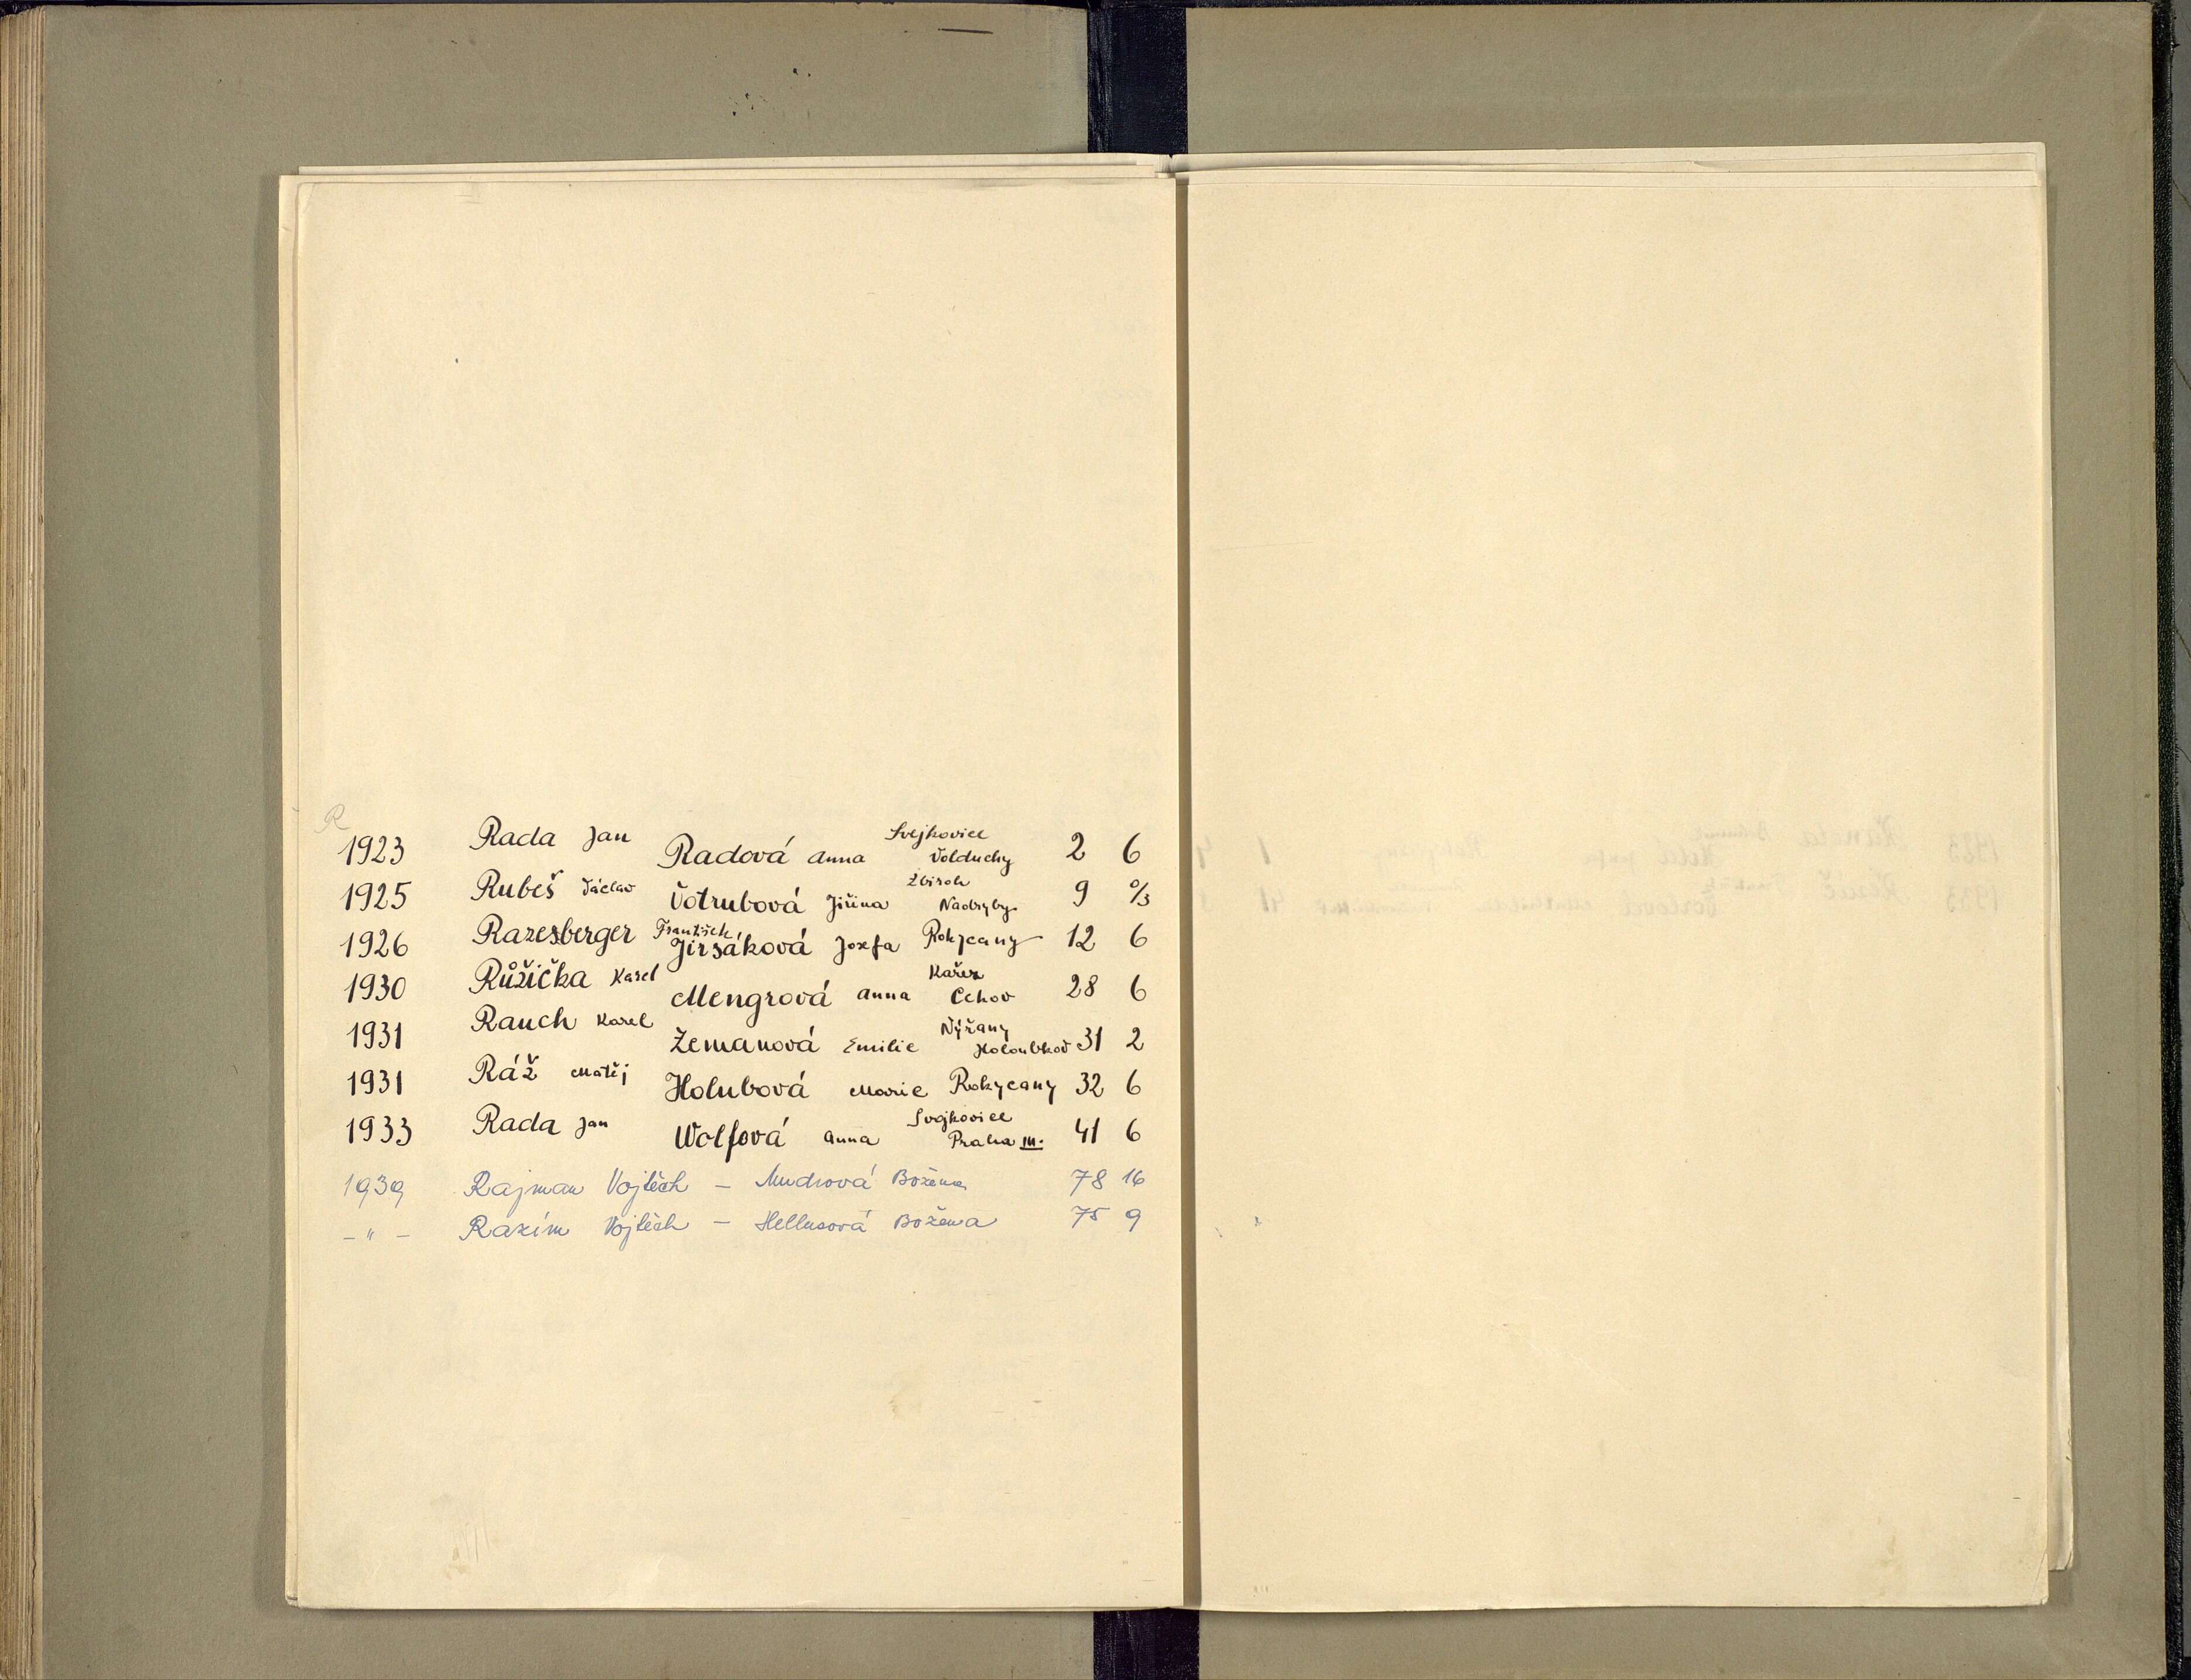 R
1923 Rada Jan Radová Anna Svejkovice Volduchy 2 6
1925 Rubeš Václav Votrubová Jiřina Zbiroh Nadryby 9 %3
1926 Razesberger František Jirsáková Josefa Rokycany 12 6
1930 Růžička Karel Mengrová Anna Kařez Cekov 28 6
1931 Rauch Karel Zemanová Emilie Nýřany Holoubkov 31 2
1931 Ráž Matěj Holubová Marie Rokycany 32 6
1933 Rada Jan Wolfová Anna Svojkovice Praha III. 41 6
1939 Rajman Vojtěch – Mudrová Božena 78 16
– " – Razím Vojtěch – Hellusová Božena 75 9